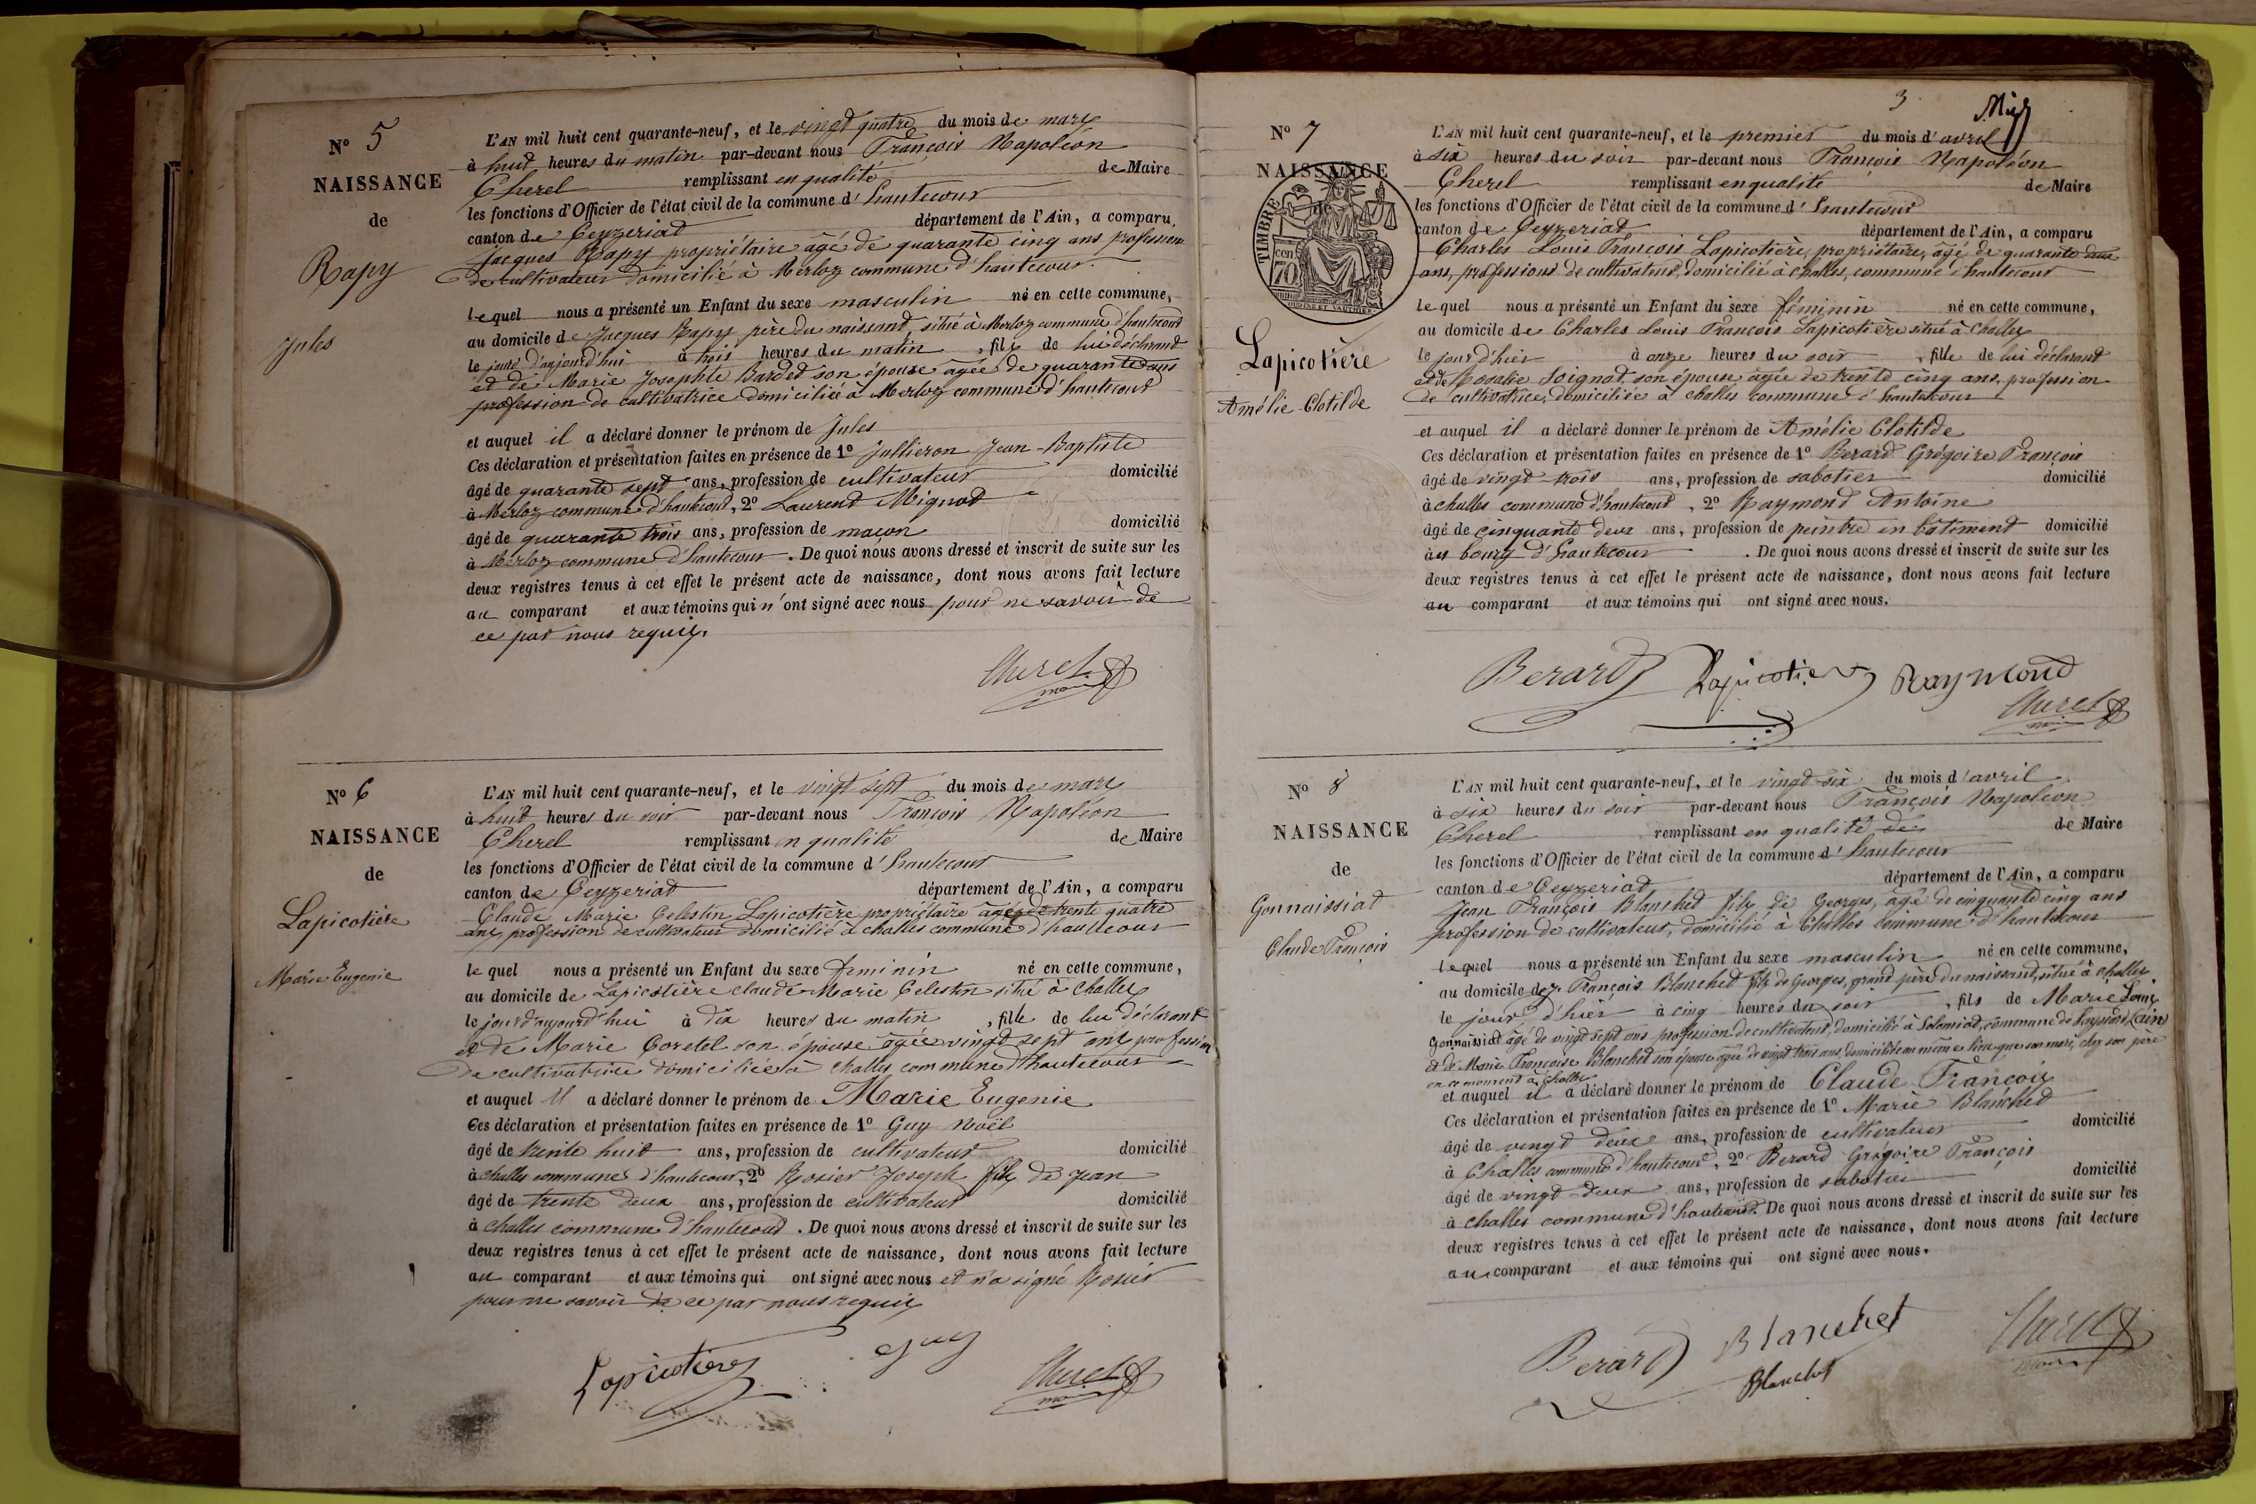 N° 5
NAISSANCE
de
Rapy
Jules
L'AN mil huit cent quarante-neuf, et le vingt quatre du mois de mars
à huit heures du matin par-devant nous François Napoléon
Cherel remplissant en qualité de Maire
les fonctions d'Officier de l'état civil de la commune d'hautecour
canton de Ceyzeriat département de l'Ain, a comparu
Jacques Rapy propriétaire âgé de quarante cinq ans profession
de cultivateur domicilié à Merloz commune d'hautecour
lequel nous a présenté un Enfant du sexe masculin né en cette commune,
au domicile de Jacques Rapy père du naissant, situé à Merloz commune d'hautecour
le jour d'aujourd'hui à trois heures du matin, fils de lui déclarant
et de Marie Josephte Bardet son épouse âgée de quarante ans
profession de cultivatrice domiciliée à Merloz commune d'hautecour
et auquel il a déclaré donner le prénom de Jules
Ces déclaration et présentation faites en présence de 1° Jullieron Jean-Baptiste
âgé de quarante sept ans, profession de cultivateur domicilié
à Merloz commune d'hautecour, 2° Laurent Mignot
âgé de quarante trois ans, profession de maçon domicilié
à Merloz commune d'hautecour. De quoi nous avons dressé et inscrit de suite sur les
deux registres tenus à cet effet le présent acte de naissance, dont nous avons fait lecture
au comparant et aux témoins qui n'ont signé avec nous pour ne savoir de
ce par nous requis.
Cherel
maire
N° 6
NAISSANCE
de
Lapicotière
Marie Eugenie
L'AN mil huit cent quarante-neuf, et le vingt sept du mois de mars
à huit heures du soir par-devant nous François Napoléon
Cherel remplissant en qualité de Maire
les fonctions d'Officier de l'état civil de la commune d'hautecour
canton de Ceyzeriat département de l'Ain, a comparu
Claude Marie Celestin Lapicotière propriétaire âgé de trente quatre
ans, profession de cultivateur domicilié à challes commune d'hautecour
lequel nous a présenté un Enfant du sexe feminin né en cette commune,
au domicile de Lapicotière claude Marie Celestin situé à Challes
le jour d'aujourd'hui à dix heures du matin, fille de lui déclarant
et de Marie Coretel son épouse âgée vingt sept ans profession
de cultivatrice domiciliée à challes commune d'hautecour
et auquel il a déclaré donner le prénom de Marie Eugenie
Ces déclaration et présentation faites en présence de 1° Guy Noël
âgé de trente huit ans, profession de cultivateur domicilié
à challes commune d'hautecour, 2° Rosier Joseph fils de Jean
âgé de trente deux ans, profession de cultivateur domicilié
à challes commune d'hautecour. De quoi nous avons dressé et inscrit de suite sur les
deux registres tenus à cet effet le présent acte de naissance, dont nous avons fait lecture
au comparant et aux témoins qui ont signé avec nous et n'a signé Rosier
pour ne savoir de ce par nous requis
Lapicotière Guy Cherel
maire
3
N° 7
NAISSANCE
de
TIMBRE
cen 70
Lapicotière
Amélie Clotilde
L'AN mil huit cent quarante-neuf, et le premier du mois d'avril
à six heures du soir par-devant nous François Napoléon
Cherel remplissant en qualité de Maire
les fonctions d'Officier de l'état civil de la commune d'hautecour
canton de Ceyzeriat département de l'Ain, a comparu
Charles Louis François Lapicotière, propriétaire, âgé de quarante deux
ans, profession de cultivateur, domicilié à challes, commune d'hautecour
lequel nous a présenté un Enfant du sexe féminin né en cette commune,
au domicile de Charles Louis François Lapicotière situé à Challes
le jour d'hier à onze heures du soir, fille de lui déclarant
et de Rosalie Soignat son épouse âgée de trente cinq ans, profession
de cultivatrice, domiciliée à challes commune d'hautecour
et auquel il a déclaré donner le prénom de Amélie Clotilde
Ces déclaration et présentation faites en présence de 1° Berard Grégoire François
âgé de vingt trois ans, profession de sabotier domicilié
à challes commune d'hautecour, 2° Raymond Antoine
âgé de cinquante deux ans, profession de peintre en bâtiment domicilié
au bourg d'hautecour. De quoi nous avons dressé et inscrit de suite sur les
deux registres tenus à cet effet le présent acte de naissance, dont nous avons fait lecture
au comparant et aux témoins qui ont signé avec nous.
Berard Lapicotière Raymond
Cherel
maire
N° 8
NAISSANCE
de
Gonnaissiat
Claude François
L'AN mil huit cent quarante-neuf, et le vingt six du mois d'avril
à six heures du soir par-devant nous François Napoléon
Cherel remplissant en qualité de de Maire
les fonctions d'Officier de l'état civil de la commune d'hautecour
canton de Ceyzeriat département de l'Ain, a comparu
Jean François Blanchet fils de Georges, âgé de cinquante cinq ans
profession de cultivateur, domicilié à Challes commune d'hautecour
lequel nous a présenté un Enfant du sexe masculin né en cette commune,
au domicile de J. François Blanchet fils de Georges, grand père du naissant, situé à challes
le jour d'hier à cinq heures du soir, fils de Marie Louis
Gonnaissiat âgé de vingt sept ans profession de cultivateur, domicilié à Solomiat, commune de Leyssard (ain)
et de Marie Françoise Blanchet son épouse âgée de vingt trois ans, domiciliée au même lieu que son mari, chez son père
en ce moment à Challes
et auquel il a déclaré donner le prénom de Claude François
Ces déclaration et présentation faites en présence de 1° Marie Blanchet
âgé de vingt deux ans, profession de cultivateur domicilié
à Challes commune d'hautecour, 2° Berard Grégoire François
âgé de vingt-deux ans, profession de sabotier domicilié
à challes commune d'hautecour. De quoi nous avons dressé et inscrit de suite sur les
deux registres tenus à cet effet le présent acte de naissance, dont nous avons fait lecture
au comparant et aux témoins qui ont signé avec nous.
Berard Blanchet Cherel
Blanchet maire